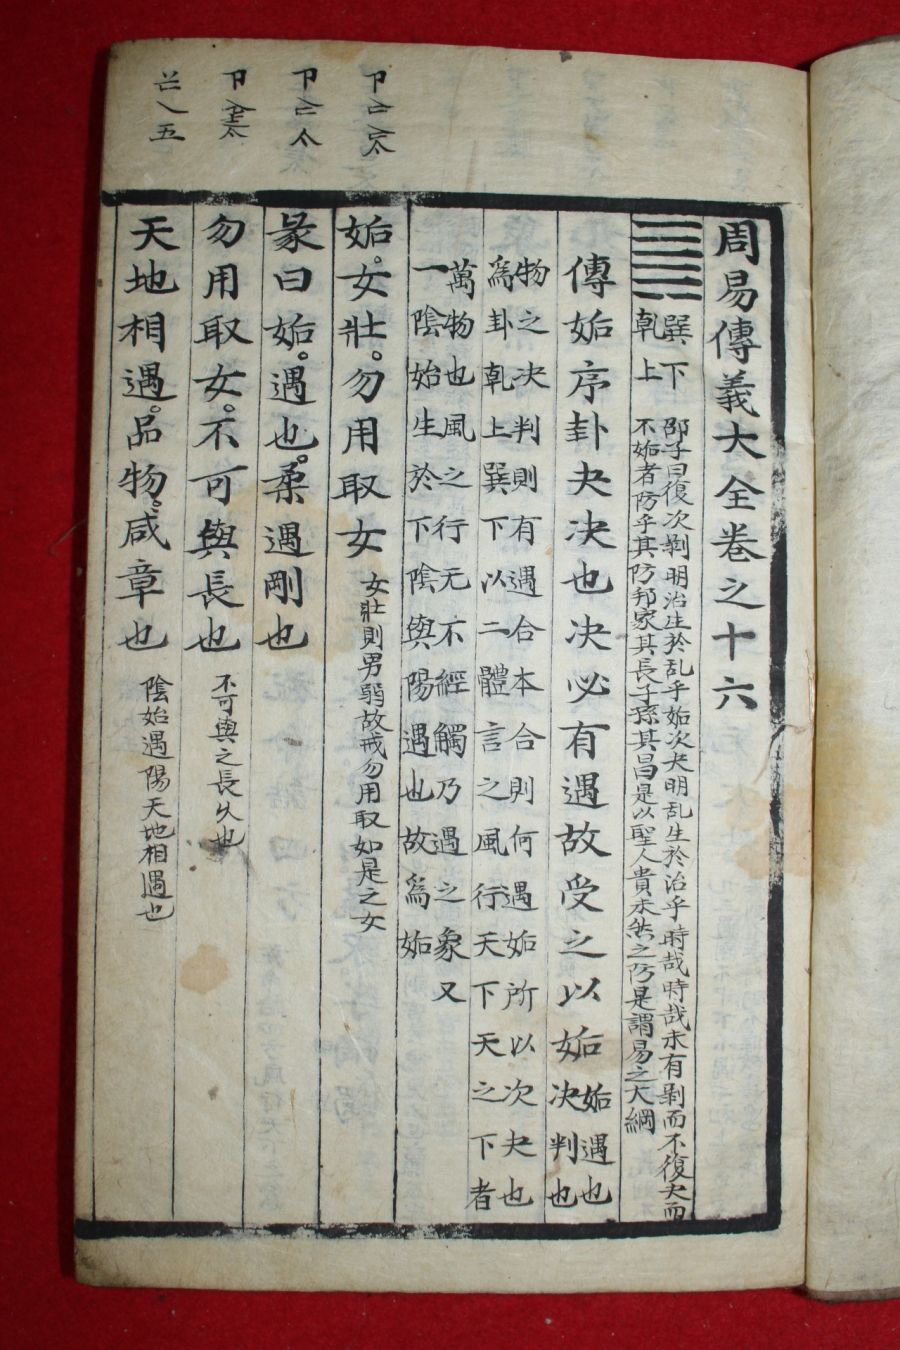 周易傳義大全卷之十六
巽下
乾上
邵子曰復次剝明治生於乱乎姤次夬明乱生於治乎時哉時哉未有剝而不復夬而
不姤者防乎其防邦家其長子孫其昌是以聖人貴未然之防是謂易之大綱
傳姤序卦夬决也决必有遇故受之以姤姤遇也
决判也
物之决判則有遇合本合則何遇姤所以次夬也
爲卦乾上巽下以二體言之風行天下天之下者
萬物也風之行无不經觸乃遇之象又
一陰始生於下陰與陽遇也故爲姤
姤女壯勿用取女
女壯則男弱故戒勿用取如是之女
彖曰姤遇也柔遇剛也
勿用取女不可與長也
不可與之長久也
天地相遇品物咸章也
陰始遇陽天地相遇也